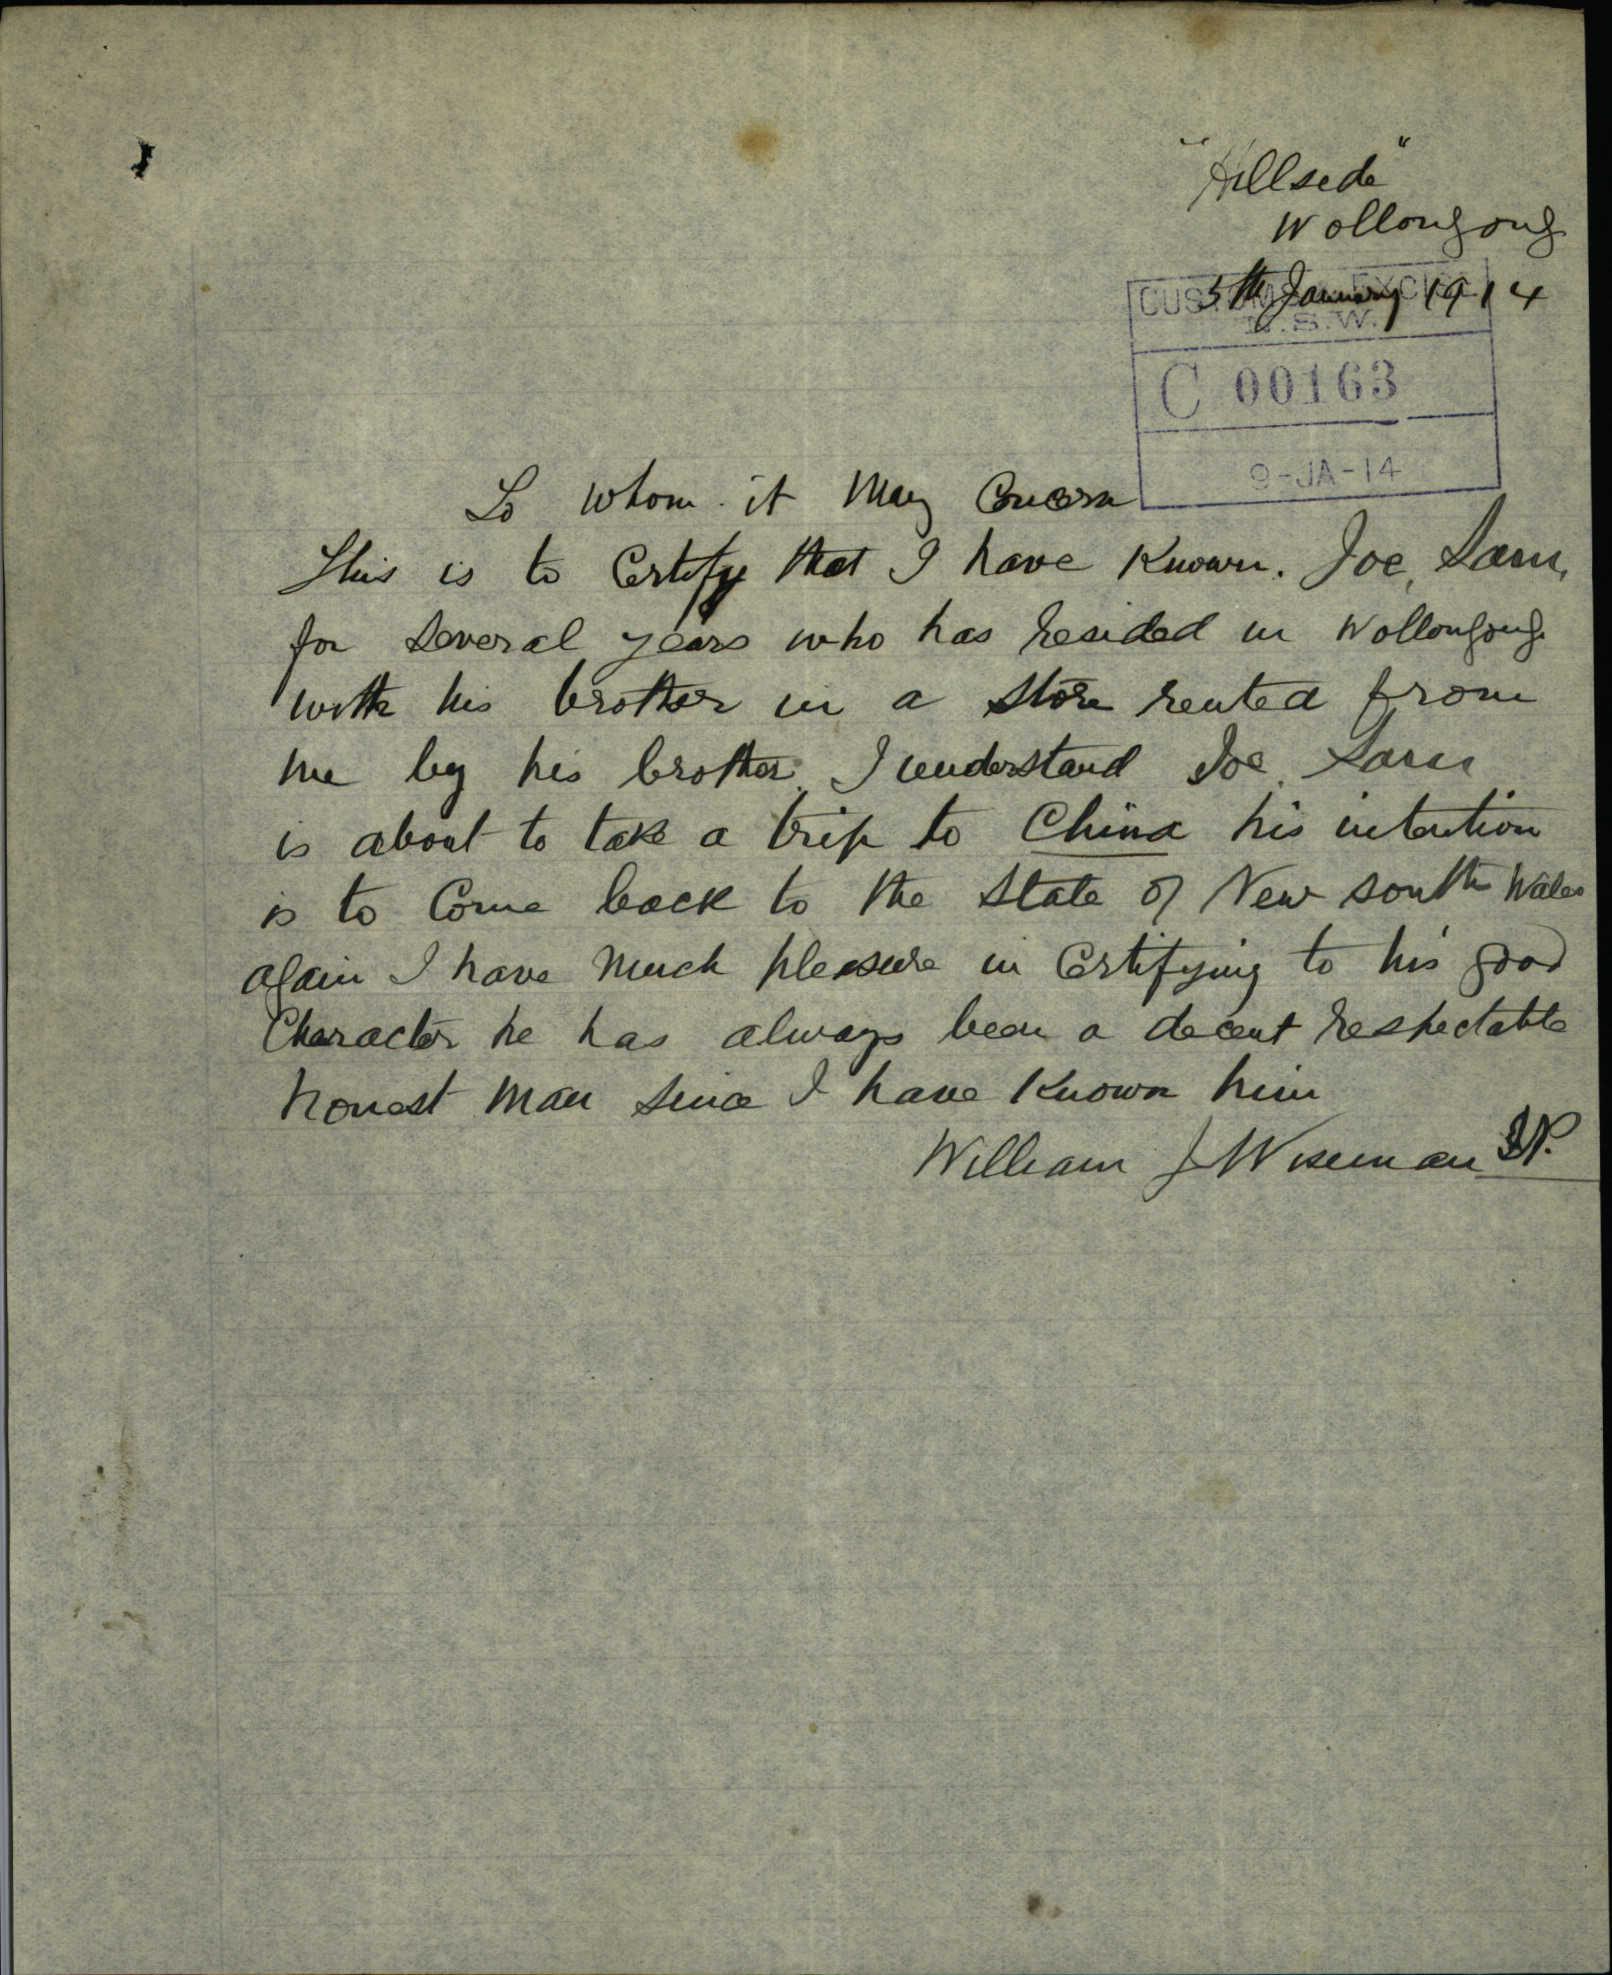 "Hillside"
Wollongong
5th January 1914
CUSTOMS EXCISE
N.S.W.
C 00163
9-JA-14
To whom it May Concern
This is to Certify that I have Known. Joe, Sam,
for several years who has resided in Wollongong
with his brother in a store rented from
me by his brother. I understand Joe, Sam
is about to take a trip to China his intention
is to Come back to the State of New south Wales
again I have Much pleasure in Certifying to his good
Character he has always been a decent respectable
honest Man since I have Known him
William J Wiseman JP.